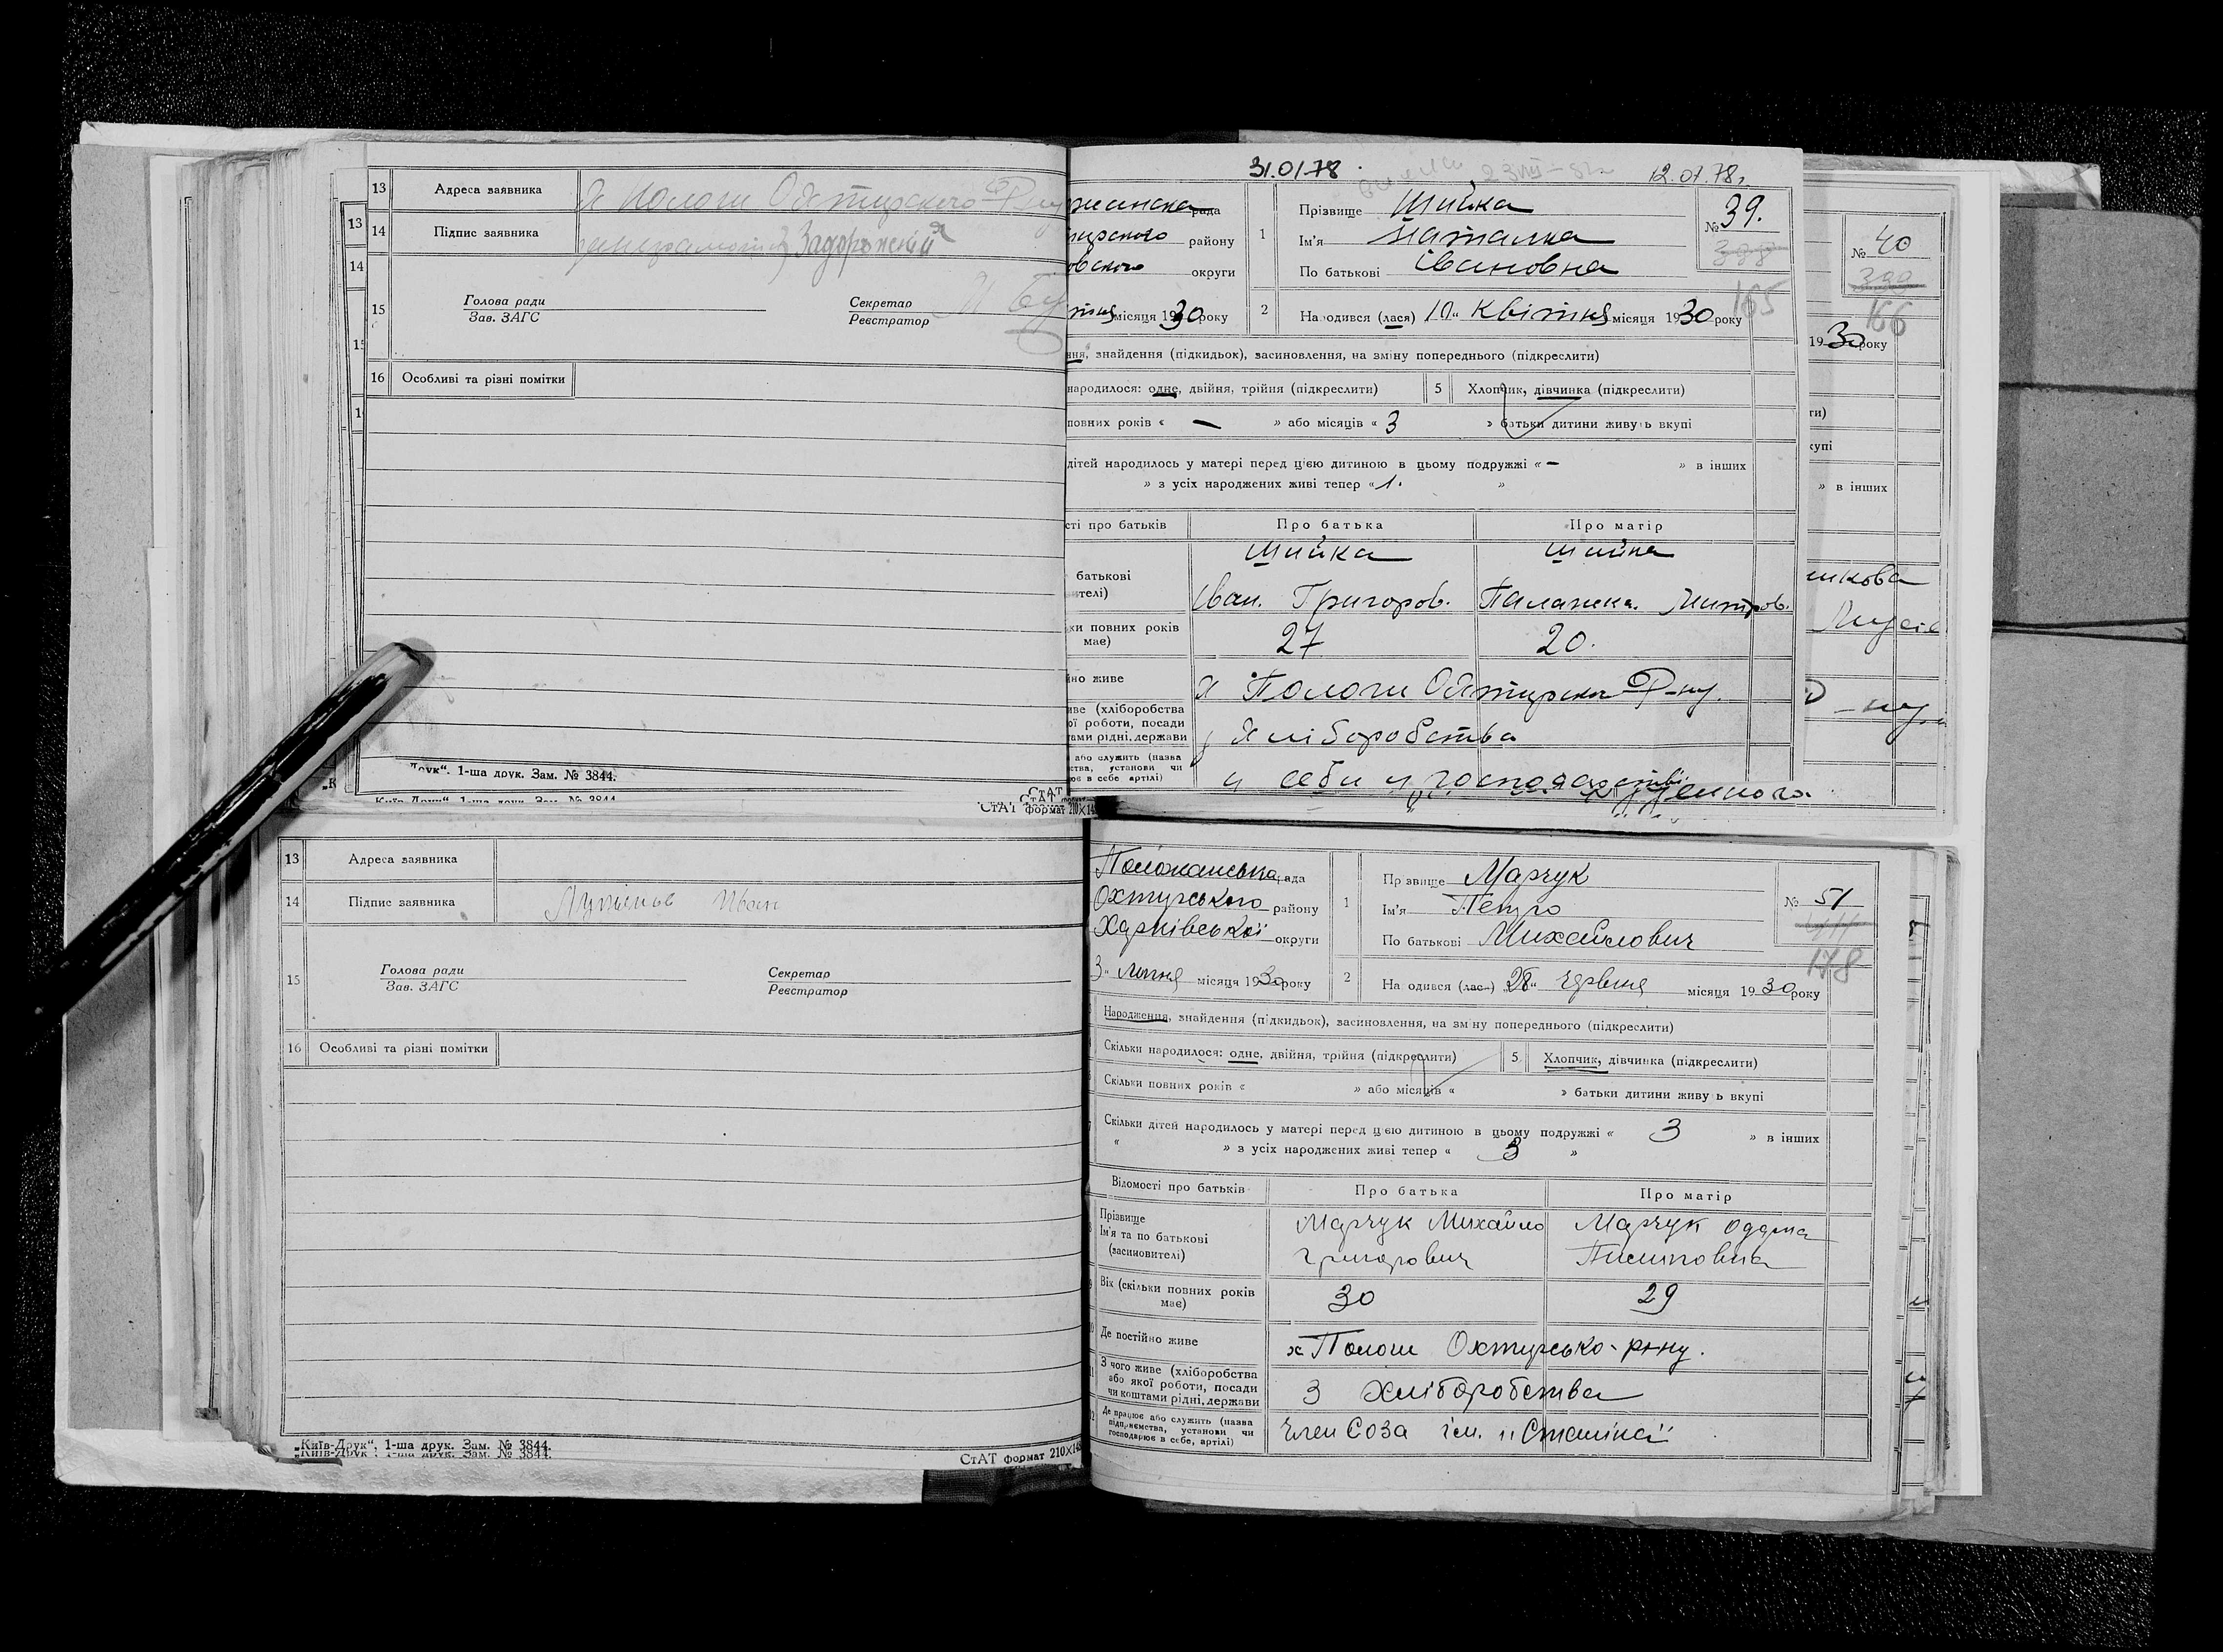 13 Адреса заявника х Пологи Охтирського Р-ну
13
14 Підпис заявника Задорожній
14
15 Голова ради
Зав. ЗАГС
Секретар
Реєстратор
16 Особливі та різні помітки
Друк“. 1-ша друк. Зам. № 3844.
СтАТ формат 210×14
31.01.78
12.01.78.
рада
району
округи
місяця 1930 року
1 Прізвище Шийка
Ім'я Наталка
По батькові Івановна
№ 39.
165
2 Народився (лася) 10 “ Квітня місяця 1930 року
ння, знайдення (підкидьок), засиновлення, на зміну попереднього (підкреслити)
народилося: одне, двійня, трійня (підкреслити) 5 Хлопчик, дівчинка (підкреслити)
повних років « — » або місяців « 3 » батьки дитини живуть вкупі
дітей народилось у матері перед цією дитиною в цьому подружжі « – » в інших
» з усіх народжених живі тепер « 1. »
сті про батьків Про батька Про матір
батькові
ителі)
Шийка Шийка
Іван. Григоров. Палажка. Митров.
ки повних років
має) 27 20.
йно живе х Пологи Охтирська Р-ну.
иве (хліборобства
ої роботи, посади
тами рідні, держави
з Хліборобства
або служить (назва
ства, установи чи
ює в себе артілі)
у себи у господарстві
№ 40
166
1930 року
ти)
купі
» в інших
13 Адреса заявника
14 Підпис заявника Іван
15 Голова ради
Зав. ЗАГС
Секретар
Реєстратор
16 Особливі та різні помітки
„Київ-Друк“, 1-ша друк. Зам. № 3844.
СтАТ формат 210×148
Положанська рада
Охтирського району
Харківської округи
3 “ липня місяця 1930 року
1 Прізвище Марчук
Ім'я Петро
По батькові Михайлович
№ 51
178
2 Народився (лася) 28 “ червня місяця 1930 року
Народження, знайдення (підкидьок), засиновлення, на зміну попереднього (підкреслити)
Скільки народилося: одне, двійня, трійня (підкреслити) 5 Хлопчик, дівчинка (підкреслити)
Скільки повних років « » або місяців « » батьки дитини живуть вкупі
Скільки дітей народилось у матері перед цією дитиною в цьому подружжі « 3 » в інших
« » з усіх народжених живі тепер « 3 »
Відомості про батьків Про батька Про матір
Прізвище
Ім'я та по батькові
(засиновителі)
Марчук Михайло
Григорович
Марчук Одарка
Пилиповна
Вік (скільки повних років
має) 30 29
Де постійно живе х Пологи Охтирсько-р-ну.
З чого живе (хліборобства
або якої роботи, посади
чи коштами рідні, держави
З Хліборобства
Де працює або служить (назва
підприємства, установи чи
господарює в себе, артілі)
Член СОЗа ім. „Сталіна“